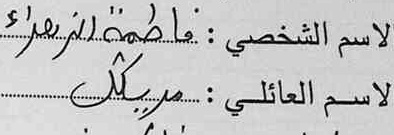 الاسم الشخصي : فاطمة الزهراء
الاسم العائلي :